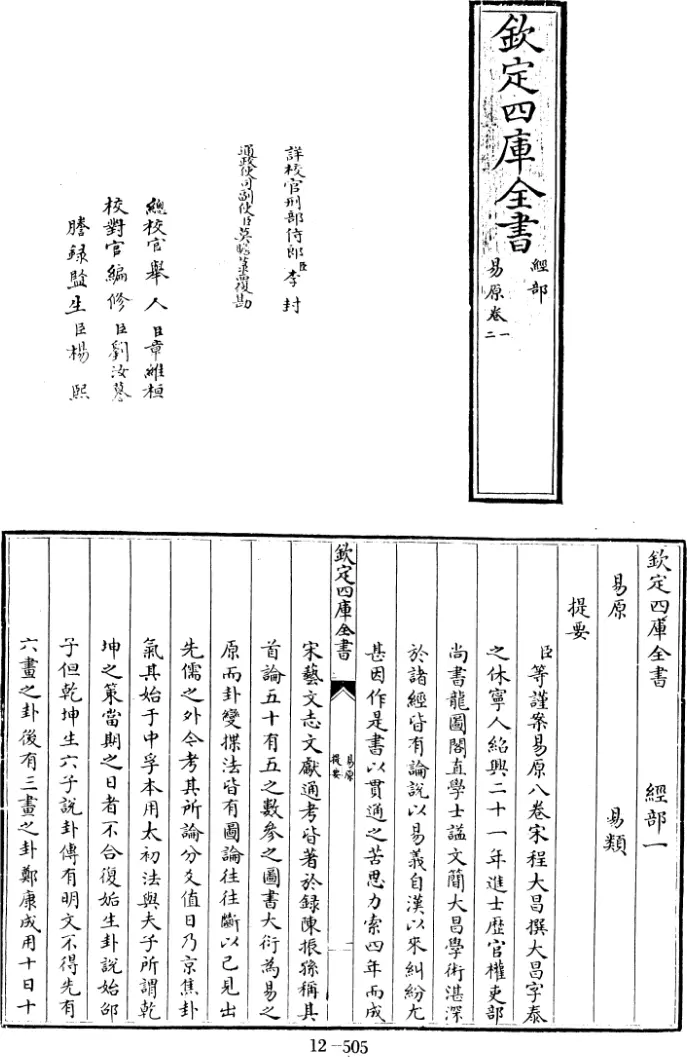 欽定四庫全書
經部
易原卷一
二
詳校官刑部侍郎臣李封
通政使司副使臣莫瞻菉覆勘
總校官舉人臣章維桓
校對官編修臣劉汝㬊
謄録監生臣楊熙
欽定四庫全書 經部一
易原 易類
提要
臣等謹案易原八卷宋程大昌撰大昌字泰
之休寧人紹興二十一年進士歴官權吏部
尚書龍圖閣直學士諡文簡大昌學術湛深
於諸經皆有論說以易義自漢以來糾紛尤
甚因作是書以貫通之苦思力索四年而成
欽定四庫全書
易原
提要
一
宋藝文志文獻通考皆著於録陳振孫稱其
首論五十有五之數參之圖書大衍為易之
原而卦變揲法皆有圖論往往斷以己見出
先儒之外今考其所論分爻值日乃京焦卦
氣其始于中孚本用太初法與夫子所謂乾
坤之策當期之日者不合復姤生卦說始邵
子但乾坤生六子說卦傳有明文不得先有
六畫之卦後有三畫之卦鄭康成用十日十
12-505